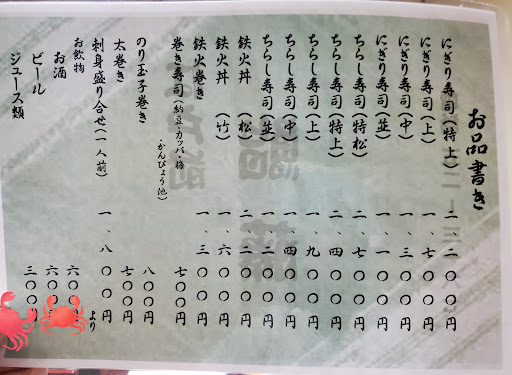 お品書き
にぎり寿司（特上） 二、二〇〇円
にぎり寿司（上） 一、七〇〇円
にぎり寿司（中） 一、三〇〇円
にぎり寿司（並） 一、一〇〇円
ちらし寿司（特松） 二、七〇〇円
ちらし寿司（特上） 二、四〇〇円
ちらし寿司（上） 一、九〇〇円
ちらし寿司（中） 一、四〇〇円
ちらし寿司（並） 一、二〇〇円
鉄火丼（松） 二、二〇〇円
鉄火丼（竹） 一、六〇〇円
鉄火巻き 一、三〇〇円
巻き寿司（納豆・カッパ・梅
・かんぴょう他） 七〇〇円
のり玉子巻き 八〇〇円
太巻き 七〇〇円
刺身盛り合せ（一人前） 一、八〇〇円より
お飲物
お酒 六〇〇
ビール 六〇
ジュース類 三〇〇